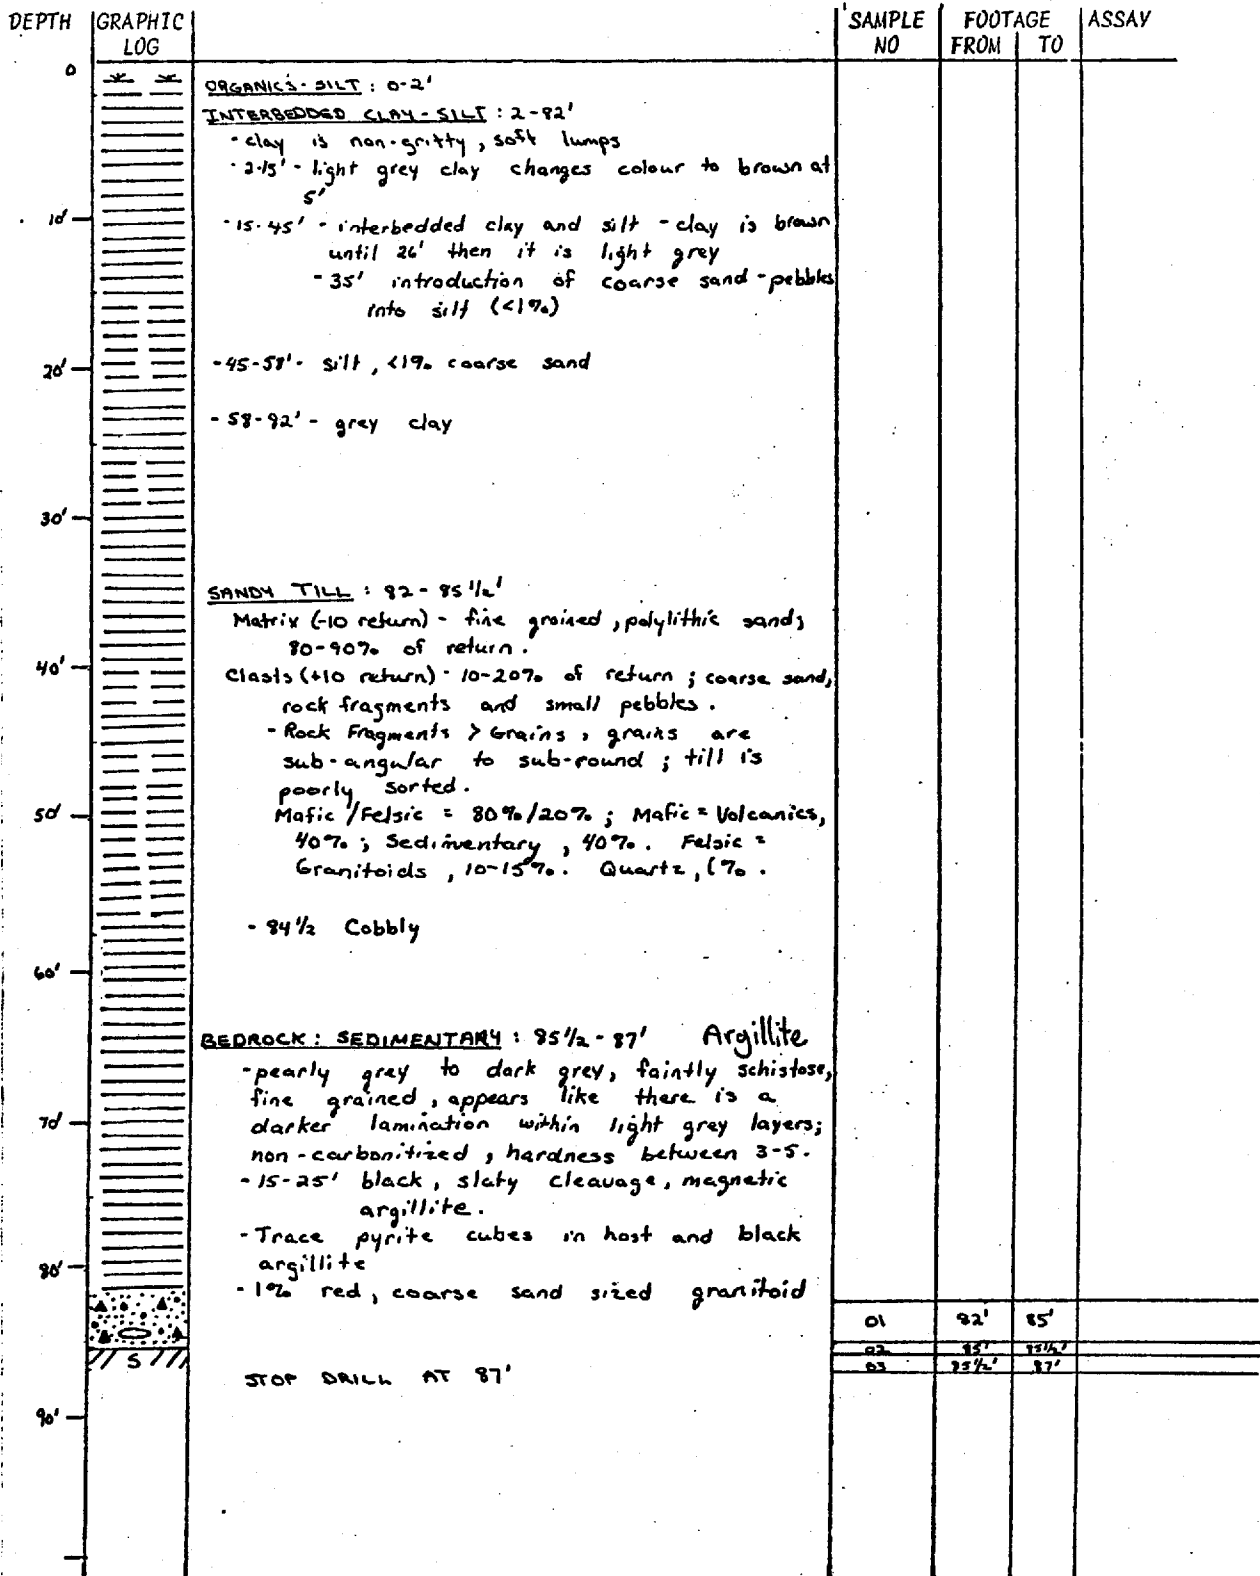 DEPTH GRAPHIC LOG SAMPLE NO FOOTAGE FROM TO ASSAY
0
ORGANICS-SILT : 0-2'
INTERBEDDED CLAY-SILT : 2-82'
-clay is non-gritty, soft lumps
-2-15' - light grey clay changes colour to brown at
5'
10'
-15-45' - interbedded clay and silt - clay is brown
until 26' then it is light grey
-35' introduction of coarse sand-pebbles
into silt (<1%)
20'
-45-58' - silt, <1% coarse sand
-58-82' - grey clay
30'
SANDY TILL : 82-85 1/2'
Matrix (-10 return) - fine grained, polylithic sand;
80-90% of return.
40'
Clasts (+10 return) - 10-20% of return ; coarse sand,
rock fragments and small pebbles.
- Rock Fragments > Grains, grains are
sub-angular to sub-round ; till is
poorly sorted.
50'
Mafic/Felsic = 80%/20% ; Mafic = Volcanics,
40% ; Sedimentary, 40%. Felsic =
Granitoids, 10-15%. Quartz,
- 84 1/2 Cobbly
60'
BEDROCK : SEDIMENTARY : 85 1/2 - 87' Argillite
-pearly grey to dark grey, faintly schistose,
fine grained, appears like there is a
70'
darker lamination within light grey layers;
non-carbonitized, hardness between 3-5.
-15-25' black, slaty cleavage, magnetic
argillite.
-Trace pyrite cubes in host and black
argillite
80'
-1% red, coarse sand sized granitoid
01 82' 85'
02 85' 85 1/2'
S
03 85 1/2' 87'
STOP DRILL AT 87'
90'